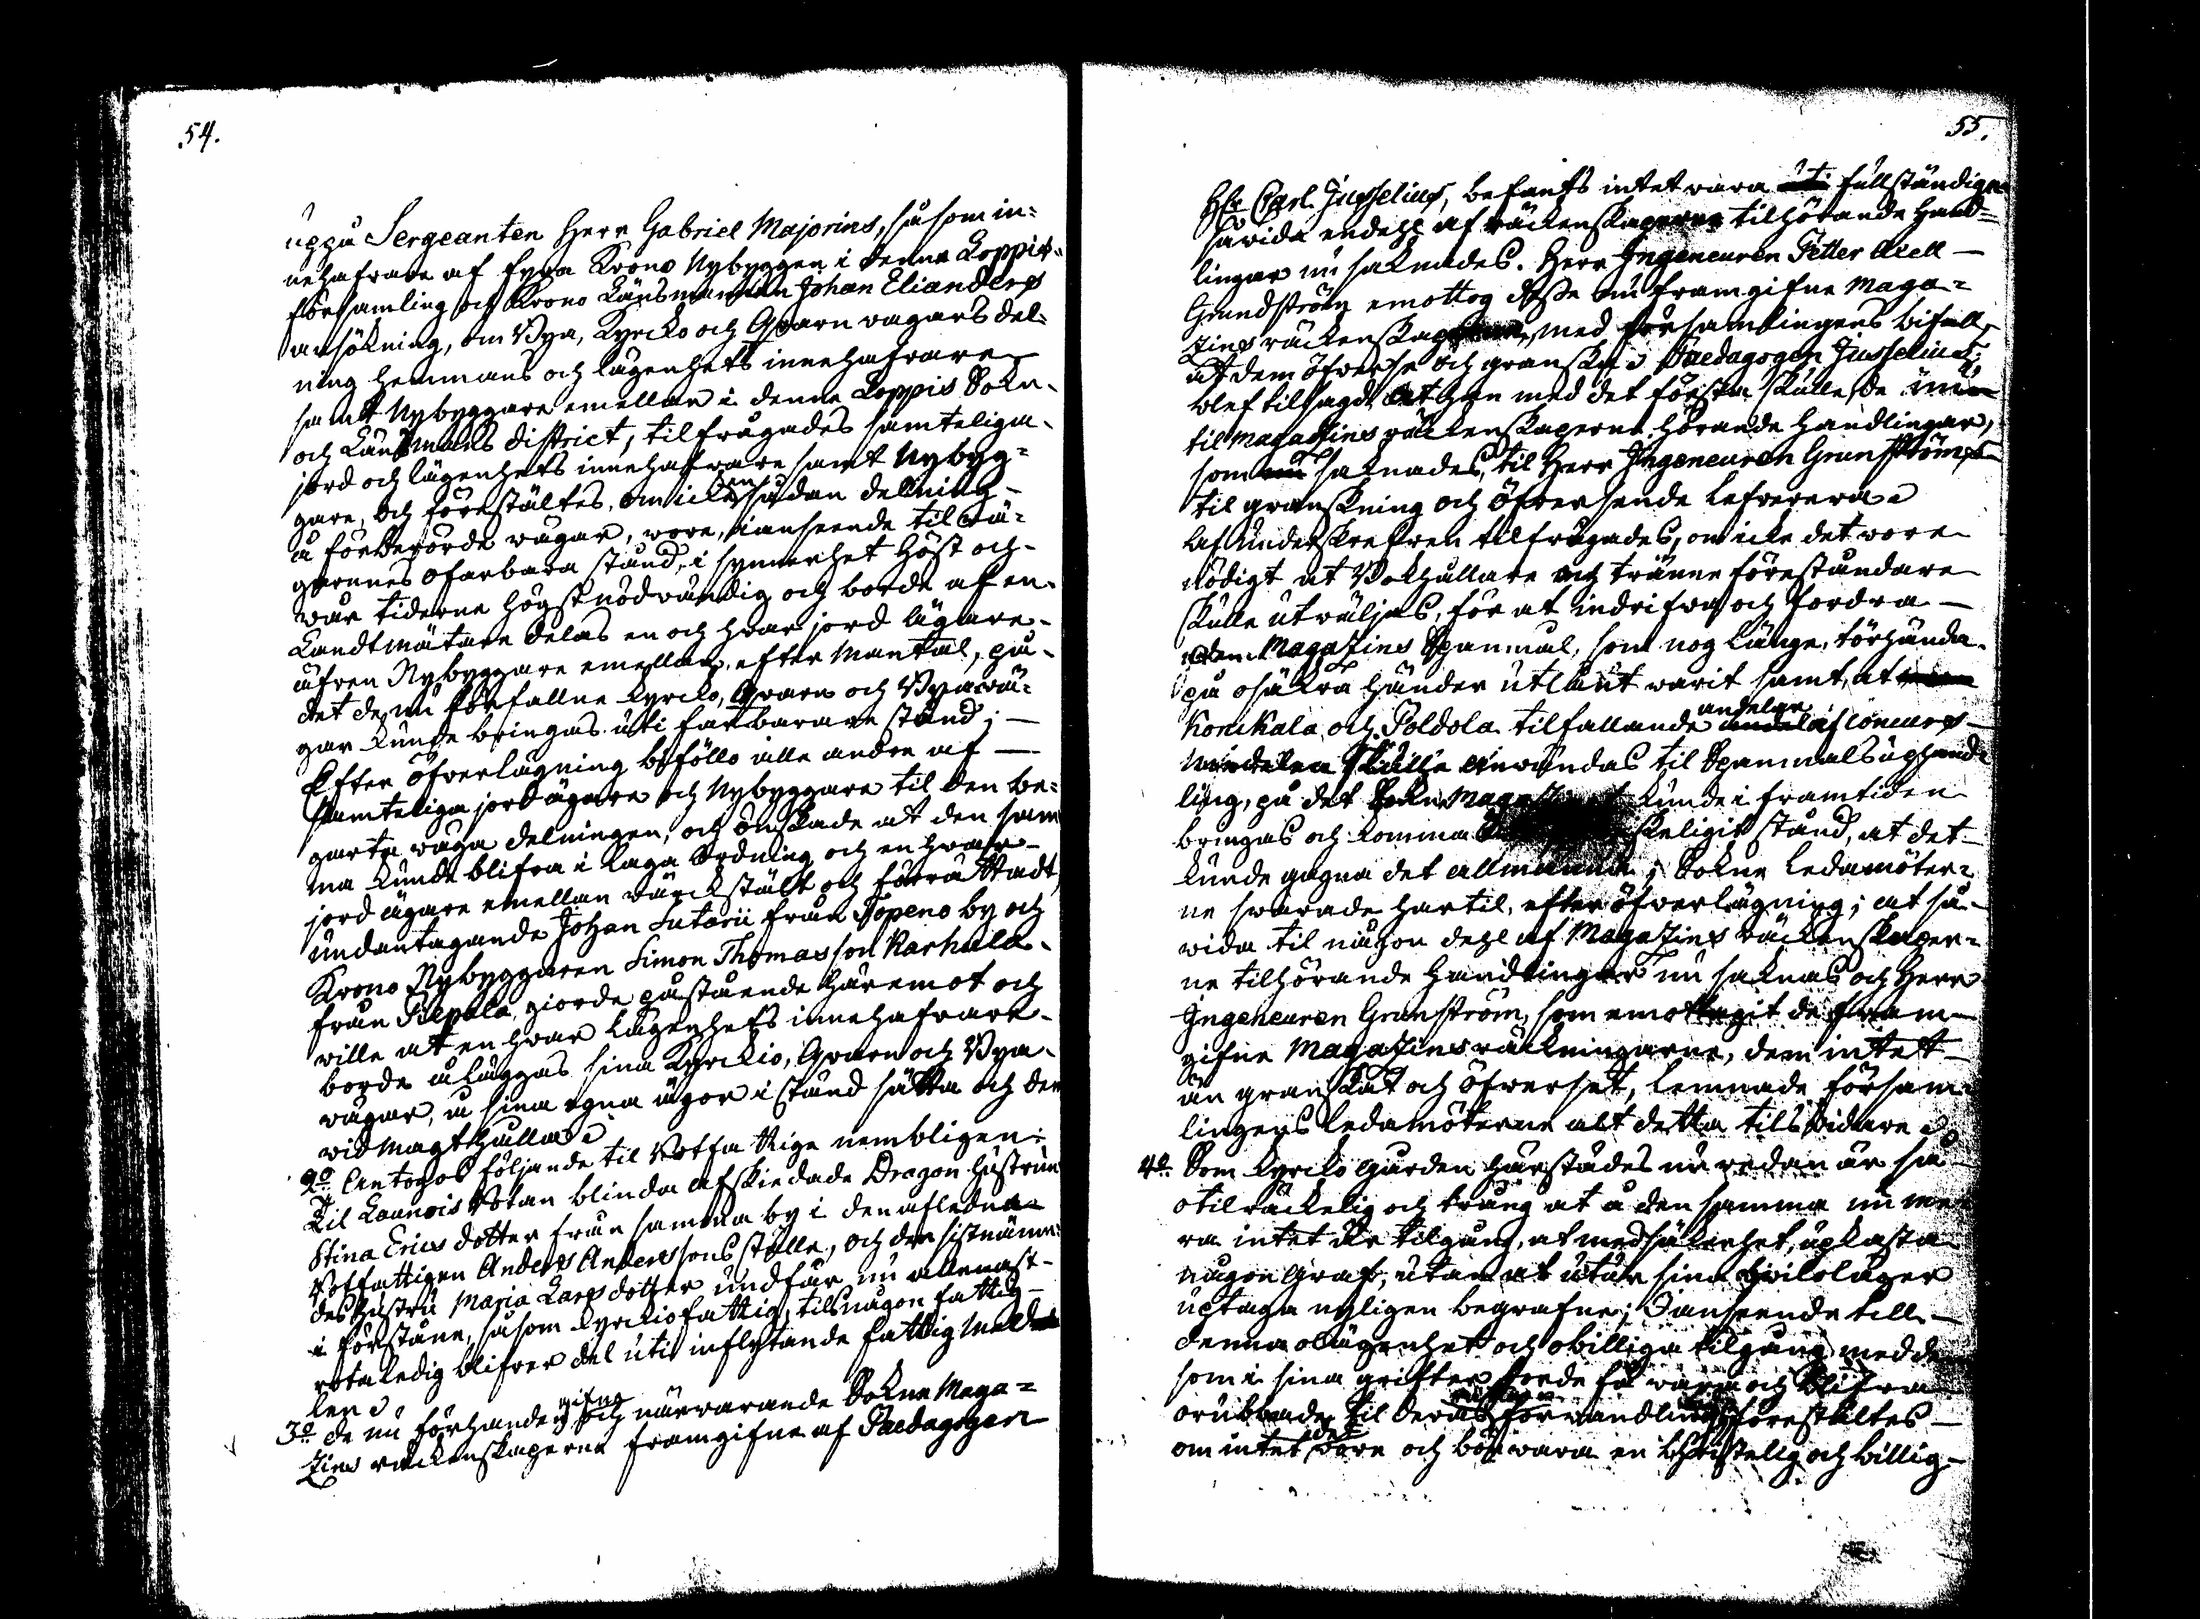 54.
uppå Sergeanten Herr Gabriel Majorins, såsom in=
nehafvare af fyra Krono Nybyggen i denna Loppis-
församling och Krono Länsmannen Johan Elianders
ansökning, om Bya, Kyrcko och Qvarn vägars del-
ning hemmans och lägenhets innehafvare
samt Nybyggare emellan i denna Loppis Sokn
och Länsmans district, tilfrågades samteliga
jord och lägenhets innehafvare samt Nybyg=
gare, och förestältes, om icke en sådan delning
å förberörde vägar, vore, i anseende til vä=
garnes ofarbara stånd, i synnerhet Höst och
vår tiderne högst nödvändig och borde af en
Landtmätare delas en och hvar jord ägare
äfven Nybyggare emellan, efter Mantal, på
det de nu förfallne Kyrcko, Qvarn och Bya vä=
gar kunde bringas uti farbarare stånd; —
Efter öfverlägning biföllo alle andre af —
samteliga jordägare och Nybyggare til den be=
gärta väga delningen, och önskade at den sam
ma kunde blifva i laga ordning och en hvar
jord ägare emellan värckstält och förrättadt,
undantagande Johan Sutarii från Topeno by och
Krono Nybyggaren Simon Thomasson Karhula
från Pilpala, giorde påstående häremot och
ville at en hvar lägenhets innehafvare
borde åläggas sina Kyrckio, Qvarn och Bya
vägar, å sina egna ägor i stånd sätta och dem
vid magthålla.
2o Antogos följande til Rotfattige nembligen:
Til Launois Rotan blinda afskiedade Dragon Hustrun
Stina Ericsdotter från samma by i den afledna
Rotfattigen Anders Anderssons ställe, och den sistnäm=
des Hustru Maria Larsdotter undfår nu allenast
i förstone, såsom Kyrckiofattig, tils någon fattig
rota ledig blifver del uti inflytande fattig Med
len.
3o De nu förhanden gifne och närvarande Sokne Maga=
zins räckenskaperna framgifne af Paedagogen
55.
Hr Carl Jusselius, befants intet vara fullständige
såvida endehl af räckenskaperne tilhörande Hand=
lingar nu saknades. Herr Ingeneuren Petter Axell
Grundström emottog desse nu framgifne Maga=
zins räckenskaperne, med församlingens bifall,
at dem öfverse och granska. Paedagogen Jusselius
blef tilsagd at han med det första skulle de
til magazins räckenskaperne hörande handlingar,
som saknades, til Herr Ingeneuren Granströms
til granskning och öfverseende lefverera.
Af Underskrefven tilfrågades, om icke det vore
nödigt at Bokhållare och tränne föreståndare
skulle utväljas, för at indrifva och fordra —
Magazins Spanmål, som nog länge, törhända
på osäkra händer utlånt varit samt, at
Konikala och Poldola tilfallande andelar af concurs
skulle användas til Spanmåls uphand=
ling, på det Sokne kunde i framtiden
bringas och komma stånd, at det
kunde gagna det allmänna; Sokne Ledamöter=
ne svarade härtil, efter öfverlägning; at så
vida til någon dehl af Magazins räckenskaper=
ne tilhörande Handlingar nu saknas och Herr
Ingeneuren Granström, som emottagit de fram
gifne Magazins räckningarne, dem intet
än granskat och öfversett, lemnade försam=
lingens ledamöterne alt detta tils vidare.
4o Som Kyrckogården härstädes nu redan är så
otilräckelig och trång at å den samma nu me
ra intet är tilgång, at med säkerhet, upkasta
någon Graf, utan at utur sina hvilolägen
uptaga nyligen begrafne; I anseende till —
denna olägenhet och obilliga tilgång med de
som i sina grifter borde få vara och blifva
orubbade til deras förvandling förestältes —
om intet det vore och bör vara en Christelig och billig